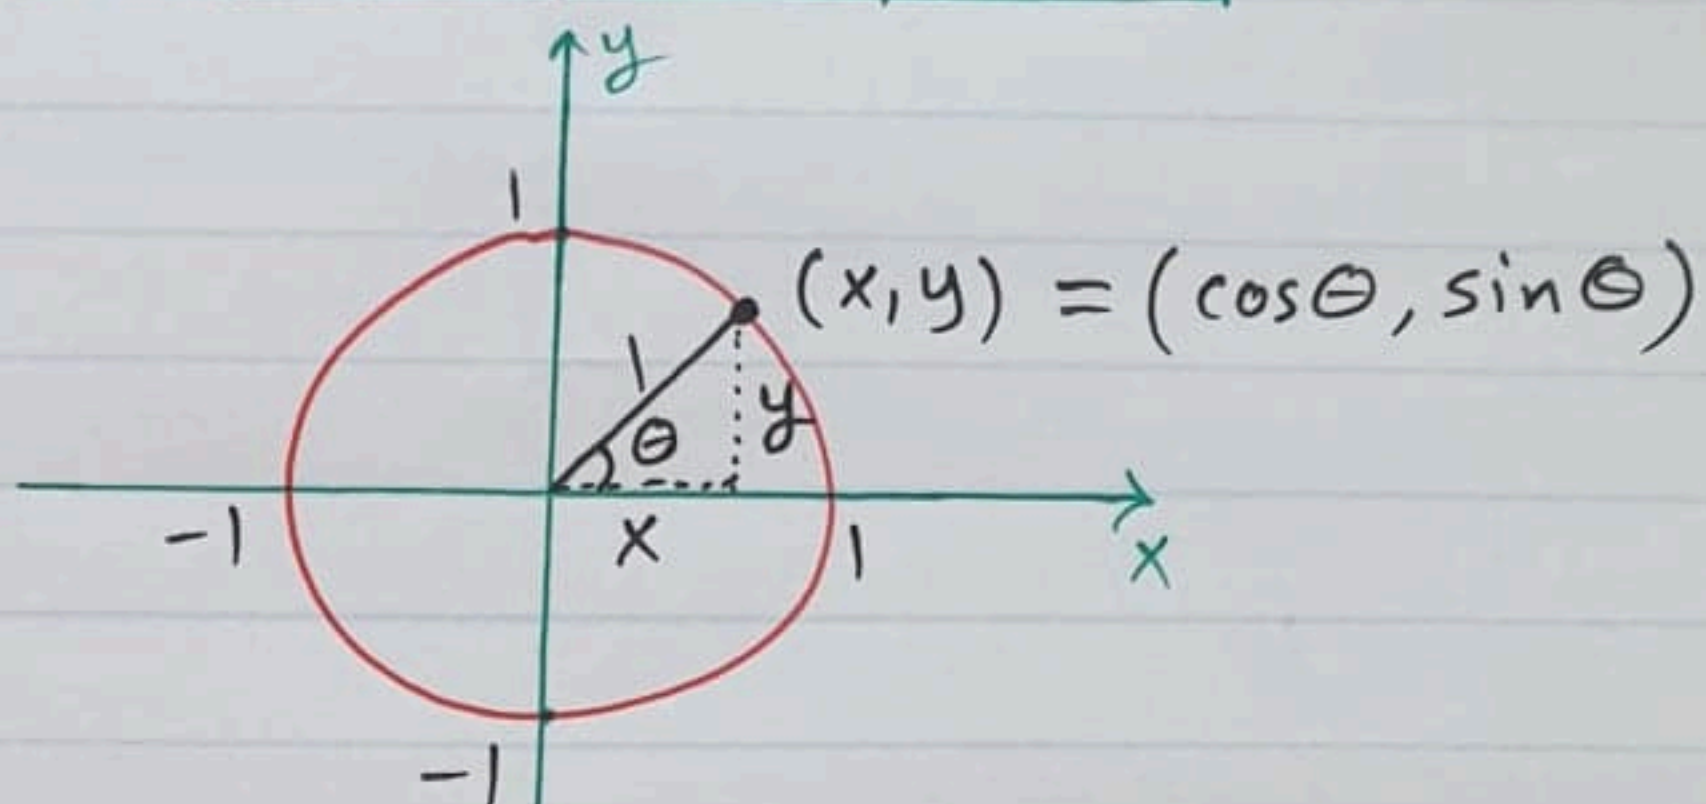 y
1
(x,y) = (cosθ, sinθ)
1
y
θ
-1
x
1
x
-1